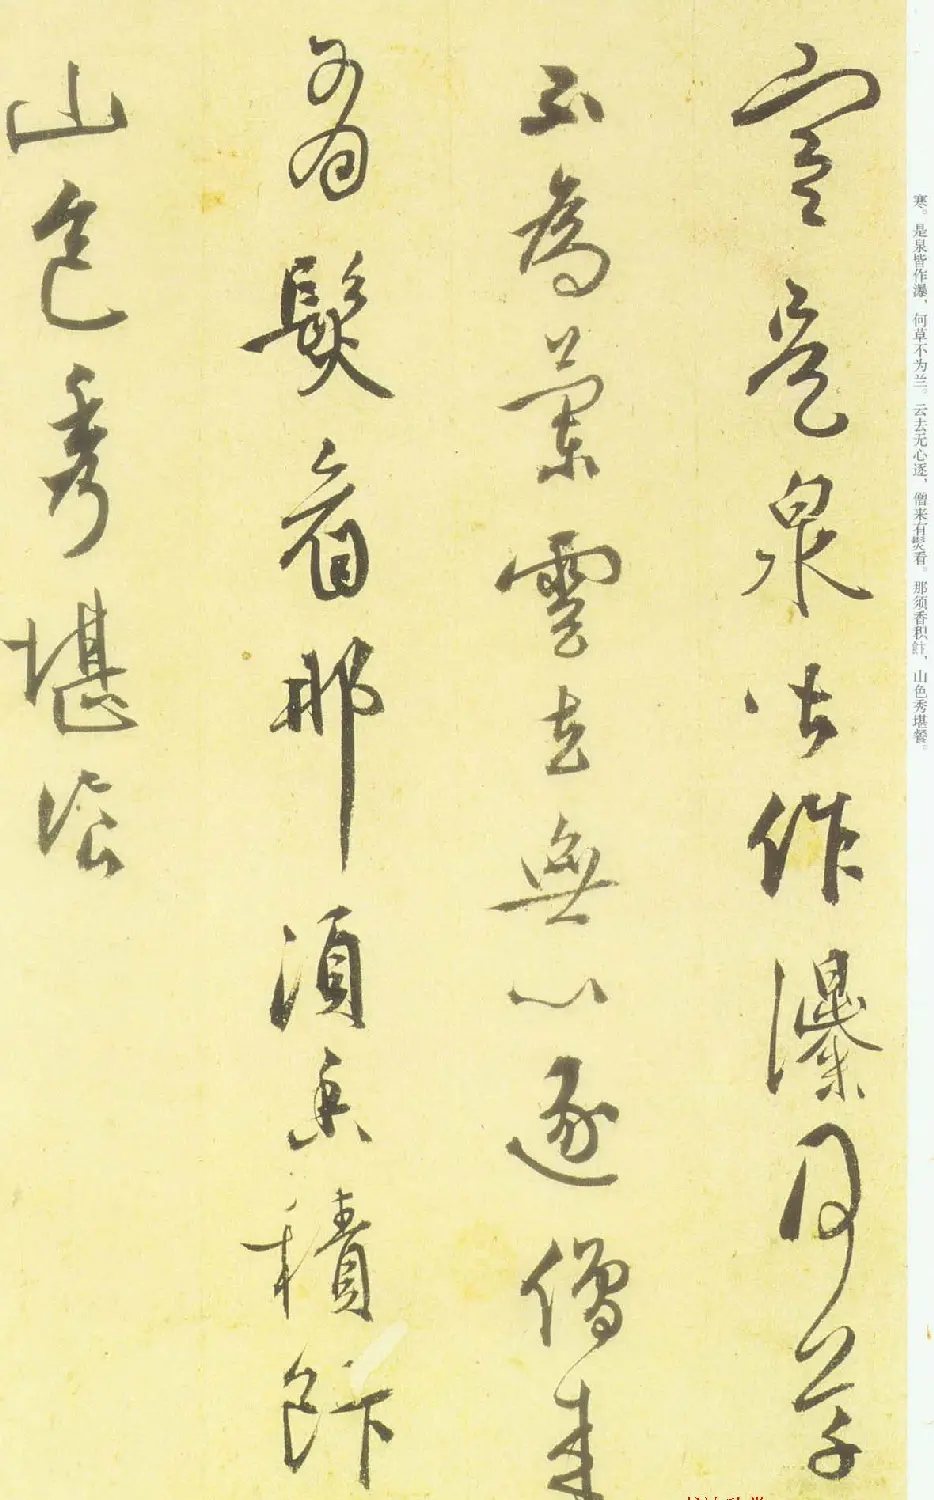 寒是泉皆作瀑何草
不為蘭雲去無心逐僧來
有髮看那須香積飰
山色秀堪飡
寒。是泉皆作瀑，何草不为兰。云去无心逐，僧来有髮看。那须香积飰，山色秀堪餐。